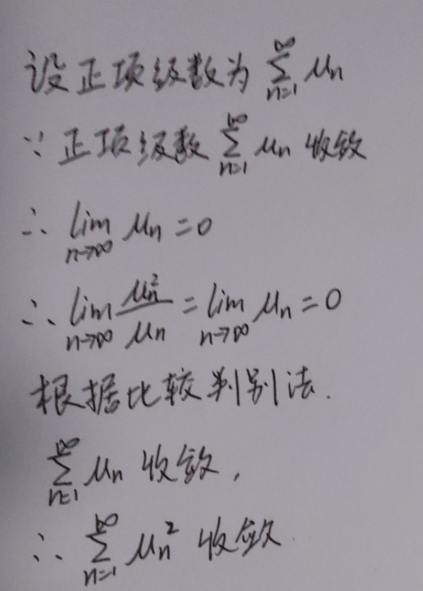 设正项级数为 ∑_{n=1}^{∞} μn
∵ 正项级数 ∑_{n=1}^{∞} μn 收敛
∴ lim_{n→∞} μn = 0
∴ lim_{n→∞} μn²/μn = lim_{n→∞} μn = 0
根据比较判别法.
∑_{n=1}^{∞} μn 收敛,
∴ ∑_{n=1}^{∞} μn² 收敛